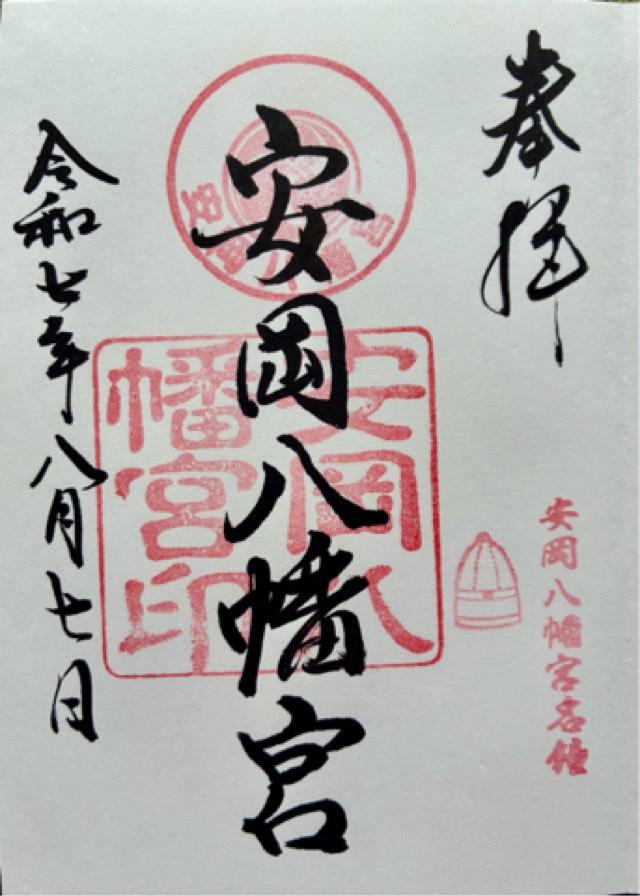 奉拝
安岡八幡宮名鐘
安岡八幡宮
安岡八幡宮
安岡八幡宮印
令和七年八月七日